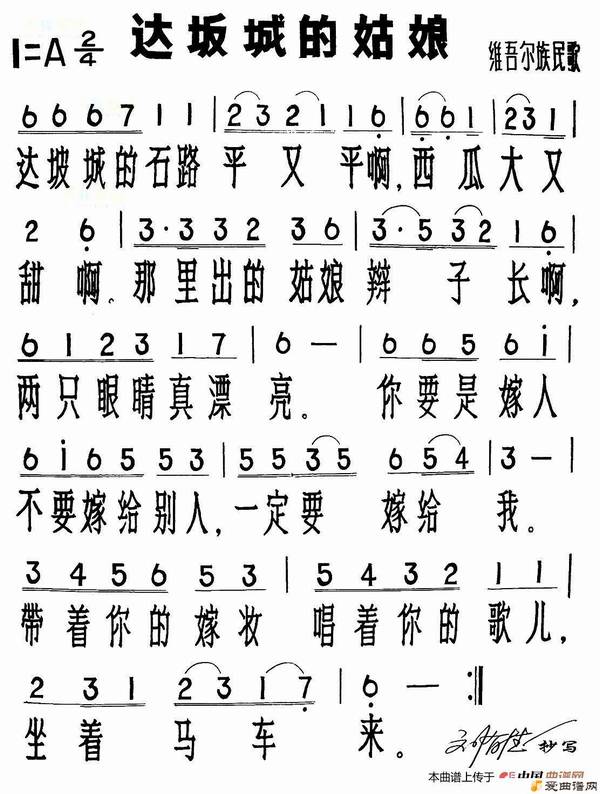 达坂城的姑娘
1=A 2/4
维吾尔族民歌
6 6 6 7 1 1 | 2 3 2 1 1 6 | 6 6 1 2 3 1 |
达坡城的石路平又平啊,西瓜大又
2 6 | 3·3 3 2 3 6 | 3·5 3 2 1 6 |
甜啊。那里出的姑娘辫子长啊,
6 1 2 3 1 7 | 6 — | 6 6 5 6 i |
两只眼睛真漂亮。你要是嫁人
6 i 6 5 5 3 | 5 5 3 5 6 5 4 | 3 — |
不要嫁给别人,一定要嫁给我。
3 4 5 6 5 3 | 5 4 3 2 1 1 |
带着你的嫁妆唱着你的歌儿,
2 3 1 2 3 1 7 | 6 — :||
坐着马车来。
抄写
本曲谱上传于 中国曲谱网
爱曲谱网